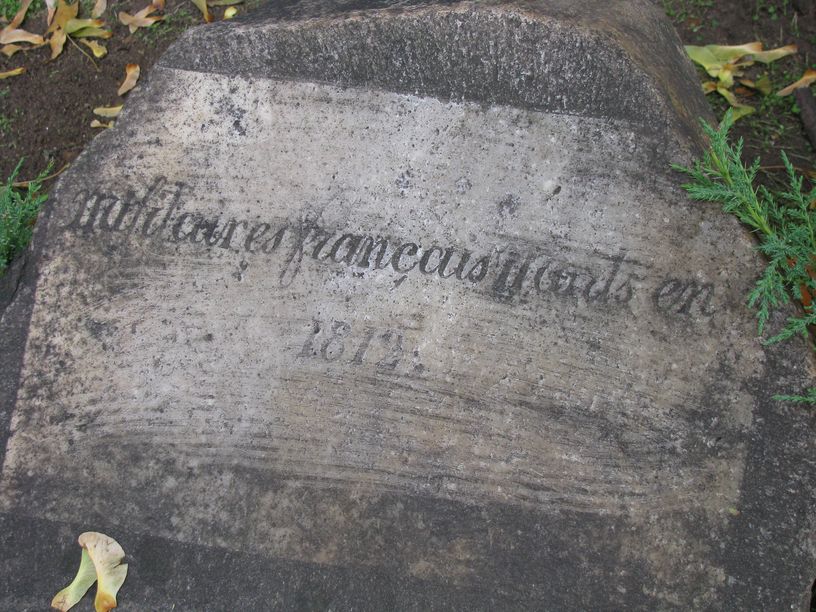 militaires français morts en
1812.